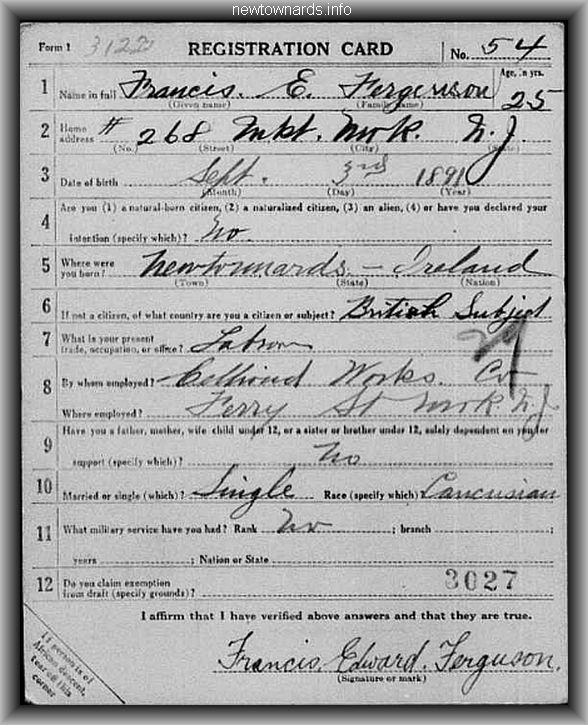 newtownards.info
Form 1 3122 REGISTRATION CARD No. 54
1 Name in full Francis. E. Fergerson Age, in yrs. 25
(Given name) (Family name)
2 Home address # 268 Mkt. Nwk. N.J.
(No.) (Street) (City) (State)
3 Date of birth Sept. 3rd 1891
(Month) (Day) (Year)
4 Are you (1) a natural-born citizen, (2) a naturalized citizen, (3) an alien, (4) or have you declared your
intention (specify which)? No
5 Where were you born? Newtownards. - Ireland
(Town) (State) (Nation)
6 If not a citizen, of what country are you a citizen or subject? British Subject
7 What is your present trade, occupation, or office?
8 By whom employed? Works. Co
Where employed? Ferry St Nwk. N.J.
9 Have you a father, mother, wife child under 12, or a sister or brother under 12, solely dependent on you for
support (specify which)? No
10 Married or single (which)? Single Race (specify which) Caucusian
11 What military service have you had? Rank No ; branch ;
years ; Nation or State
12 Do you claim exemption from draft (specify grounds)? 3027
I affirm that I have verified above answers and that they are true.
Francis. Edward. Ferguson.
(Signature or mark)
If person is of
African descent,
tear off this
corner